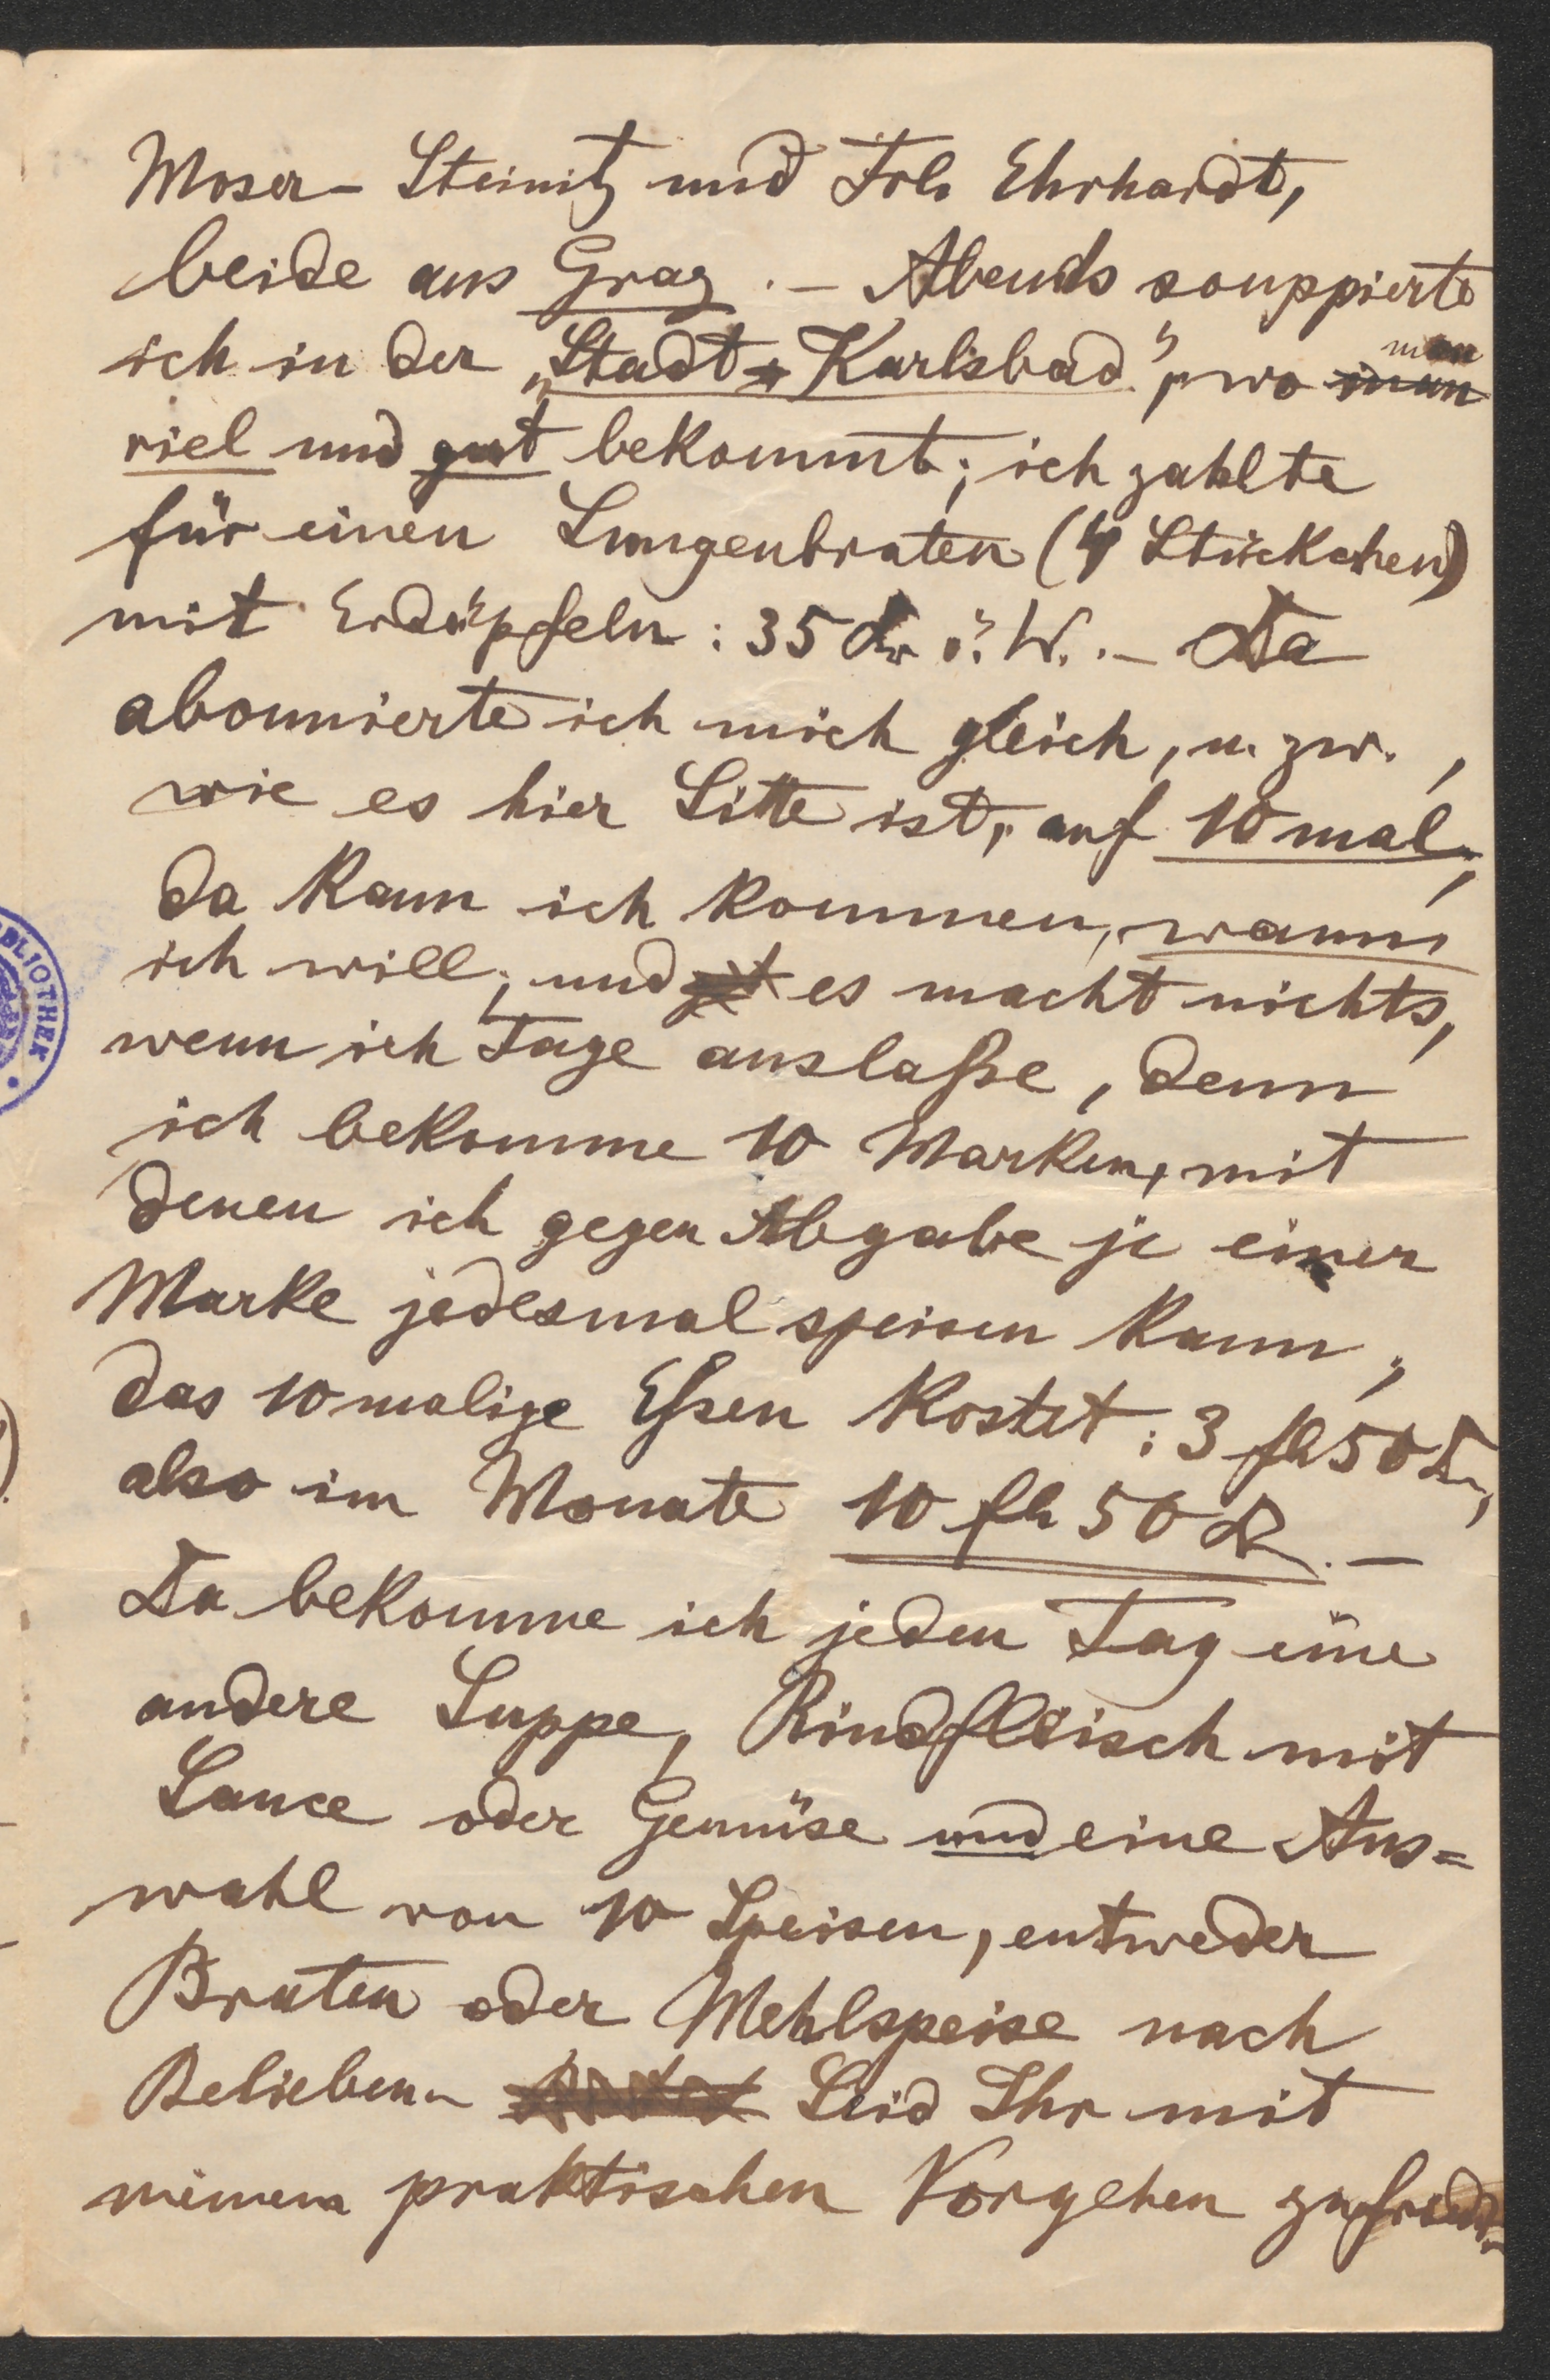 Moser - Steinitz und Frl. Ehrhardt,
beide aus Graz. – Abends souppierte
ich in der „Stadt Karlsbad“, wo man
viel und gut bekommt; ich zahlte
für einen Lungenbraten (4 Stückchen)
mit Erdäpfeln: 35 kr ö. W. – Da
abonnierte ich mich gleich, u. zw.,
wie es hier Sitte ist, auf 10 mal;
da kann ich kommen, wann
ich will, und es macht nichts,
wenn ich Tage auslaße, denn
ich bekomme 10 Marken, mit
denen ich gegen Abgabe je einer
Marke jedesmal speisen kann;
das 10 malige Eßen kostet: 3 fl 50 kr,
also im Monate 10 fl 50 kr. –
Da bekomme ich jeden Tag eine
andere Suppe, Rindfleisch mit
Sauce oder Gemüse und eine Aus=
wahl von 10 Speisen, entweder
Braten oder Mehlspeise nach
Belieben. Seid Ihr mit
meinem praktischen Vorgehen
BLIOTHEK